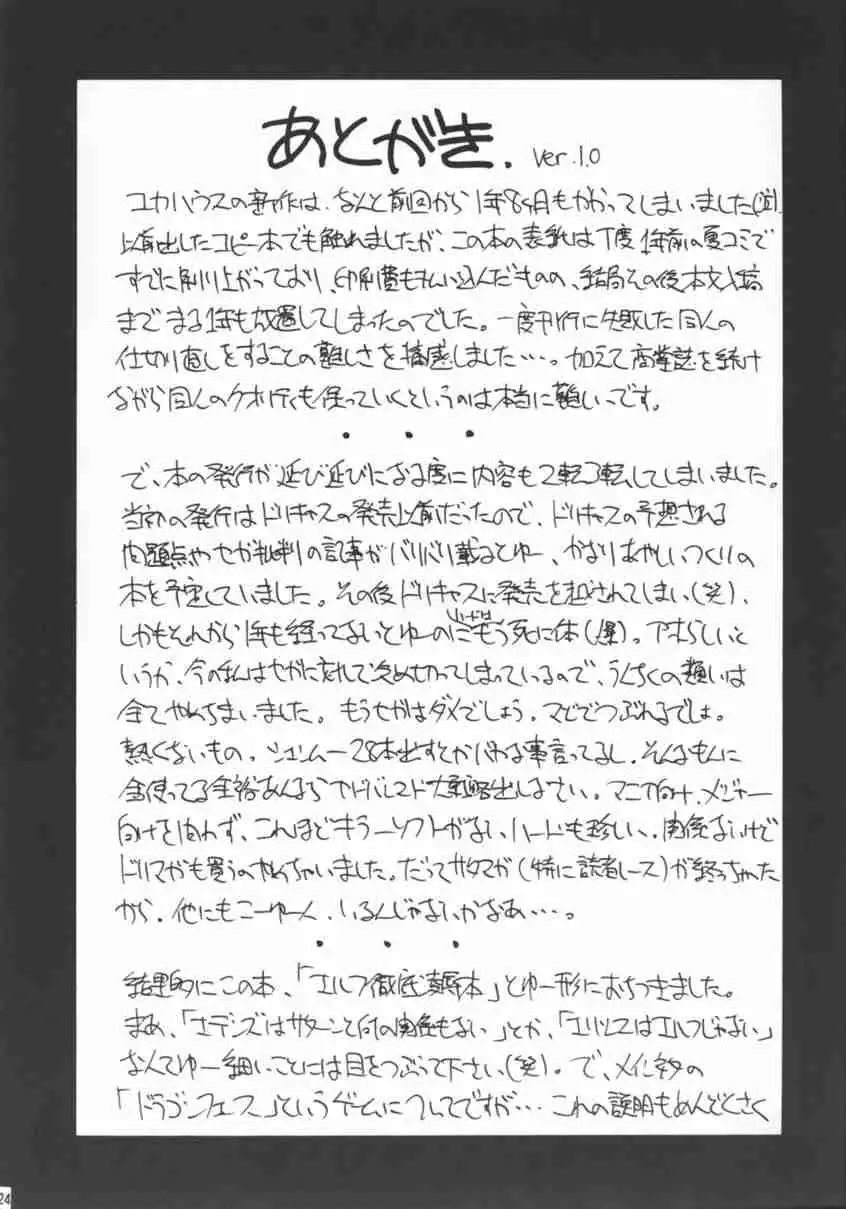 あとがき. ver.1.0
ユカハウスの新作は、なんと前回から1年8ヶ月もかかってしまいました
以前出したコピー本でも触れましたが、この本の表紙は丁度1年前の夏コミで
すでに刷り上がっており、印刷費も払い込んだものの、結局その後本文入稿
までまる1年も放置してしまったのでした。一度刊行に失敗した同人の
仕切り直しをすることの難しさを痛感しました…。加えて商業誌を続け
ながら同人のクオリティも保っていくというのは本当に難しいです。
・・・
で、本の発行が延び延びになる度に内容も2転3転してしまいました。
当初の発行はドリキャスの発売以前だったので、ドリキャスの予想される
問題点やセガ批判の記事がバリバリ載るとゆー、かなりあやしいつくりの
本を予定していました。その後ドリキャスに発売を越されてしまい(笑)、
しかもそれから1年も経ってないとゆーのにもう死に体(爆)。アホらしいと
いうか、今の私はセガに忘れて冷め切ってしまっているので、うんちくの類いは
全てやめちまいました。もうセガはダメでしょう。マジでつぶれるでしょ。
熱くないもの。シェンムー28本出すとかバカな事言ってるし。そんなもんに
金使ってる余裕あんならアドバンスド大戦略出しなさい。マニア向け、メジャー
向けを問わず、これほどキラーソフトがないハードも珍しい。関係ないけど
ドリマガも買うのやめちゃいました。だってサタマガ(特に読者レース)が終っちゃった
から。他にもこーゆー人、いるんじゃないかなあ…。
・・・
結果的にこの本、「エルフ徹底凌辱本」とゆー形におちつきました。
まあ、「エデンズはサターンと何の関係もない」とか、「エリスはエルフじゃない」
なんてゆー細いことには目をつぶって下さい(笑)。で、メインネタの
「ドラゴンフォース」というゲームについてですが… これの説明もめんどくさく
24